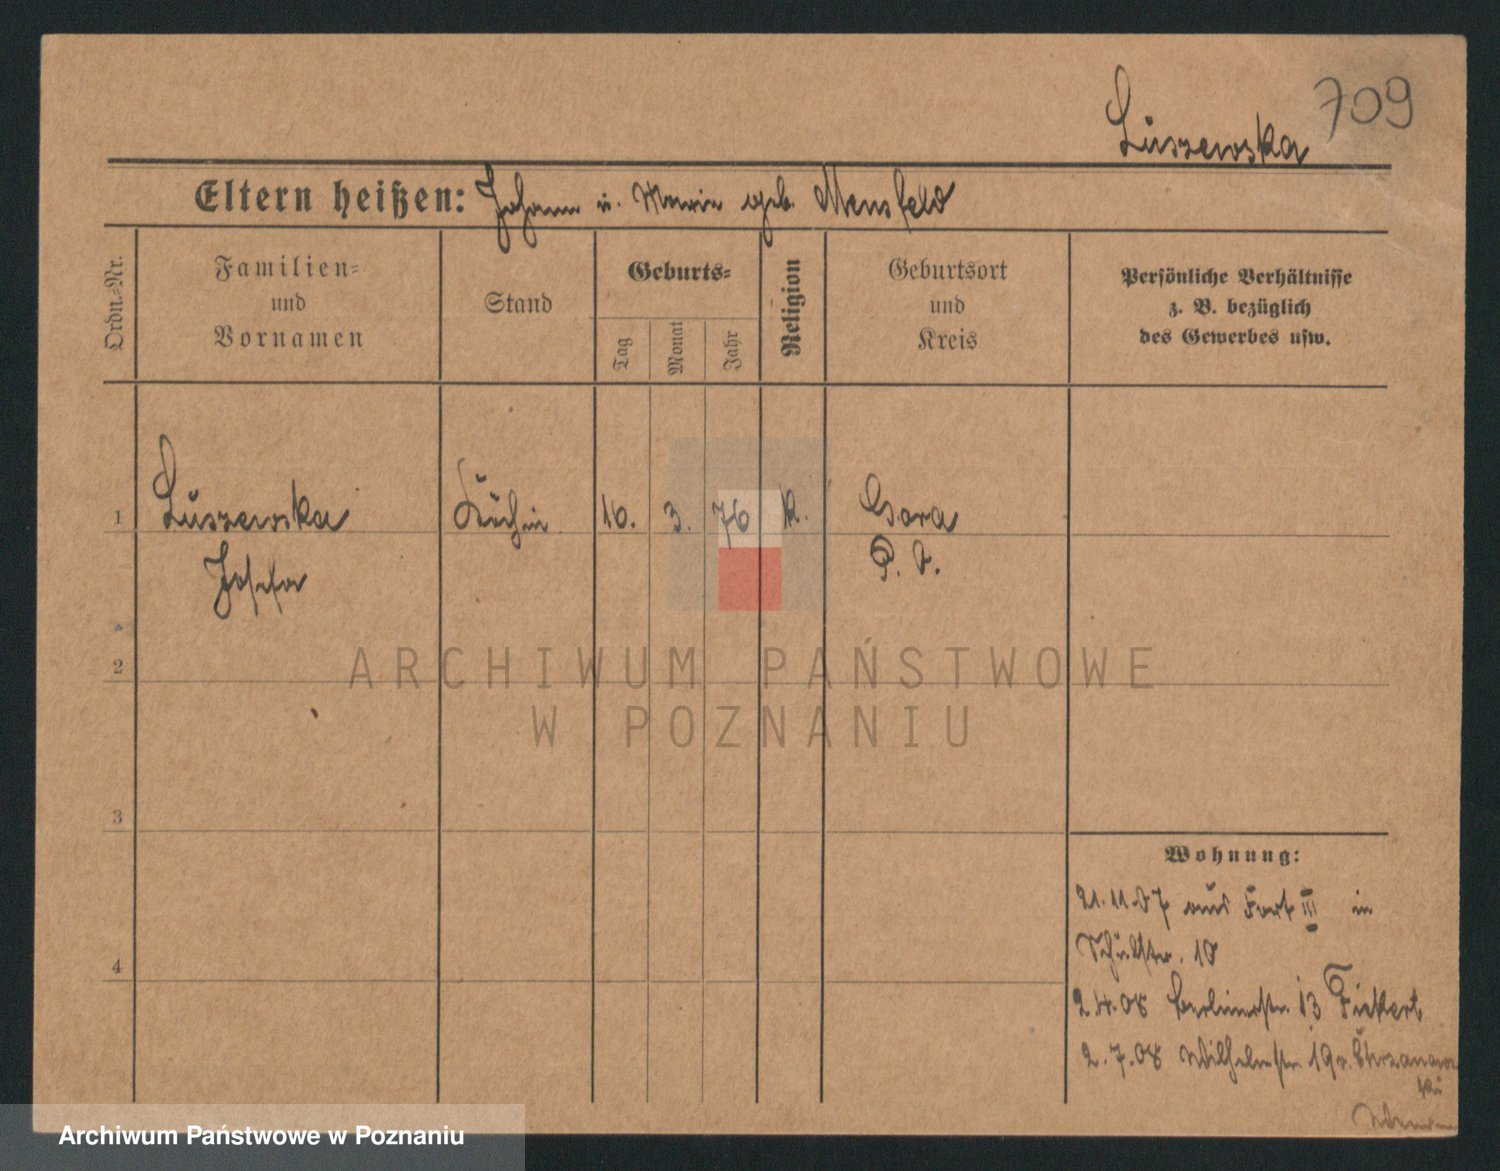 709
Luszewska
Eltern heißen: Johann u. Maria geb. Mensfeld
Ordn.-Nr.
Familien-
und
Vornamen
Stand
Geburts-
Tag
Monat
Jahr
Religion
Geburtsort
und
Kreis
Persönliche Verhältnisse
z. B. bezüglich
des Gewerbes usw.
1 Luszewska Köchin 16. 3. 76 k. Gora
Josefa P. O.
2
ARCHIWUM PAŃSTWOWE
W POZNANIU
3
Wohnung:
21.11.07 aus Fort III in
Schulstr. 10
4
2.4.08 Berlinerstr. 13 Fiekert
2.7.08 Wilhelmstr. 19
Archiwum Państwowe w Poznaniu